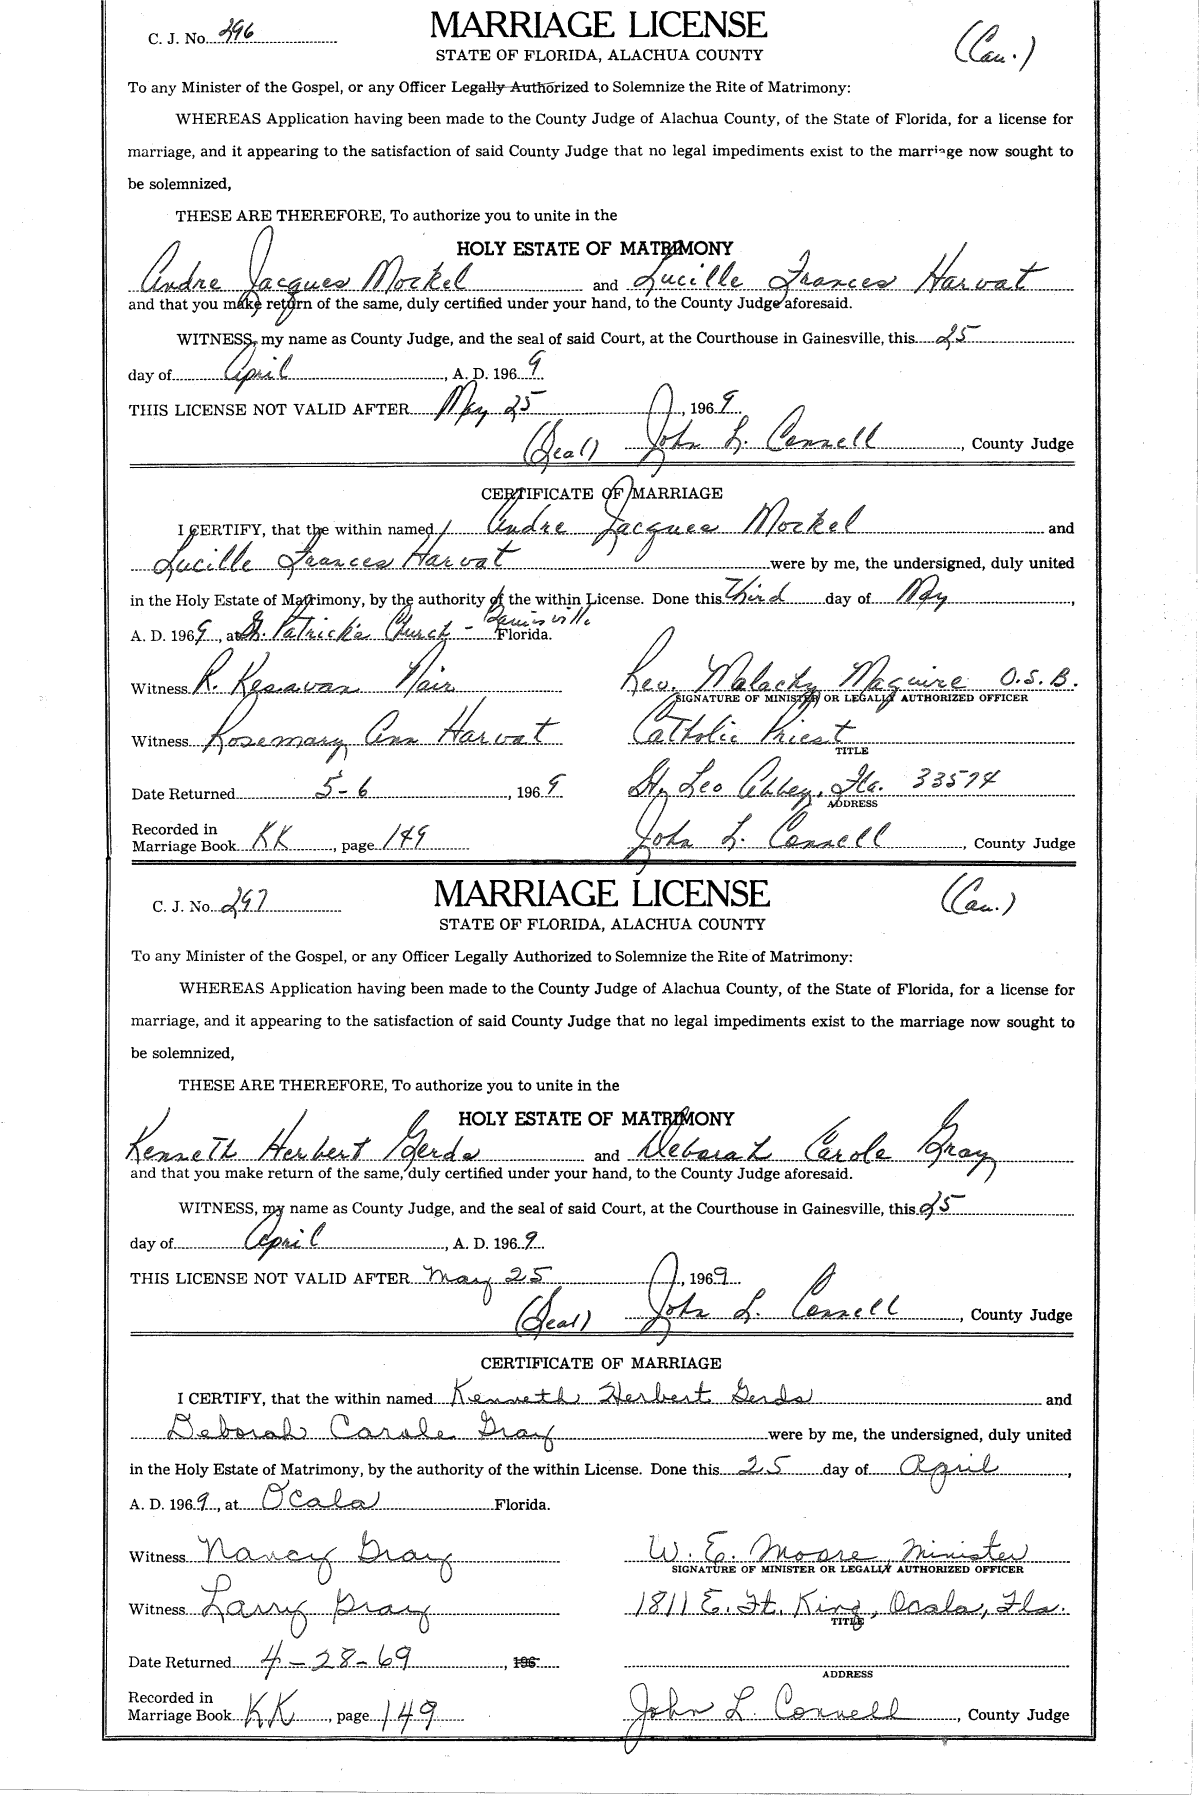 C. J. No. 296
MARRIAGE LICENSE
(Cau.)
STATE OF FLORIDA, ALACHUA COUNTY
To any Minister of the Gospel, or any Officer Legally Authorized to Solemnize the Rite of Matrimony:
WHEREAS Application having been made to the County Judge of Alachua County, of the State of Florida, for a license for
marriage, and it appearing to the satisfaction of said County Judge that no legal impediments exist to the marriage now sought to
be solemnized,
THESE ARE THEREFORE, To authorize you to unite in the
HOLY ESTATE OF MATRIMONY
Andre Jacques Mockel and Lucille Frances Harvat
and that you make return of the same, duly certified under your hand, to the County Judge aforesaid.
WITNESS, my name as County Judge, and the seal of said Court, at the Courthouse in Gainesville, this 25
day of April, A. D. 1969
THIS LICENSE NOT VALID AFTER May 25, 1969
(Seal) John L. Connell, County Judge
CERTIFICATE OF MARRIAGE
I CERTIFY, that the within named Andre Jacques Mockel and
Lucille Frances Harvat were by me, the undersigned, duly united
in the Holy Estate of Matrimony, by the authority of the within License. Done this Third day of May,
A. D. 1969, at St. Patrick's Church - Gainesville Florida.
Witness R. Kesavan Nair
Rev. Malachy Maguire O.S.B.
SIGNATURE OF MINISTER OR LEGALLY AUTHORIZED OFFICER
Witness Rosemary Ann Harvat
Catholic Priest
TITLE
Date Returned 5-6, 1969
St. Leo Abbey, Fla. 33574
ADDRESS
Recorded in
Marriage Book KK, page 149
John L. Connell, County Judge
C. J. No. 297
MARRIAGE LICENSE
(Cau.)
STATE OF FLORIDA, ALACHUA COUNTY
To any Minister of the Gospel, or any Officer Legally Authorized to Solemnize the Rite of Matrimony:
WHEREAS Application having been made to the County Judge of Alachua County, of the State of Florida, for a license for
marriage, and it appearing to the satisfaction of said County Judge that no legal impediments exist to the marriage now sought to
be solemnized,
THESE ARE THEREFORE, To authorize you to unite in the
HOLY ESTATE OF MATRIMONY
Kenneth Herbert Gerds and Deborah Carole Gray
and that you make return of the same, duly certified under your hand, to the County Judge aforesaid.
WITNESS, my name as County Judge, and the seal of said Court, at the Courthouse in Gainesville, this 25
day of April, A. D. 1969
THIS LICENSE NOT VALID AFTER May 25, 1969
(Seal) John L. Connell, County Judge
CERTIFICATE OF MARRIAGE
I CERTIFY, that the within named Kenneth Herbert Gerds and
Deborah Carole Gray were by me, the undersigned, duly united
in the Holy Estate of Matrimony, by the authority of the within License. Done this 25 day of April,
A. D. 1969, at Ocala Florida.
Witness Nancy Gray
W. E. Moore, Minister
SIGNATURE OF MINISTER OR LEGALLY AUTHORIZED OFFICER
Witness Larry Gray
1811 E. Ft. King, Ocala, Fla.
TITLE
Date Returned 4-28-69, 196
ADDRESS
Recorded in
Marriage Book KK, page 149
John L. Connell, County Judge